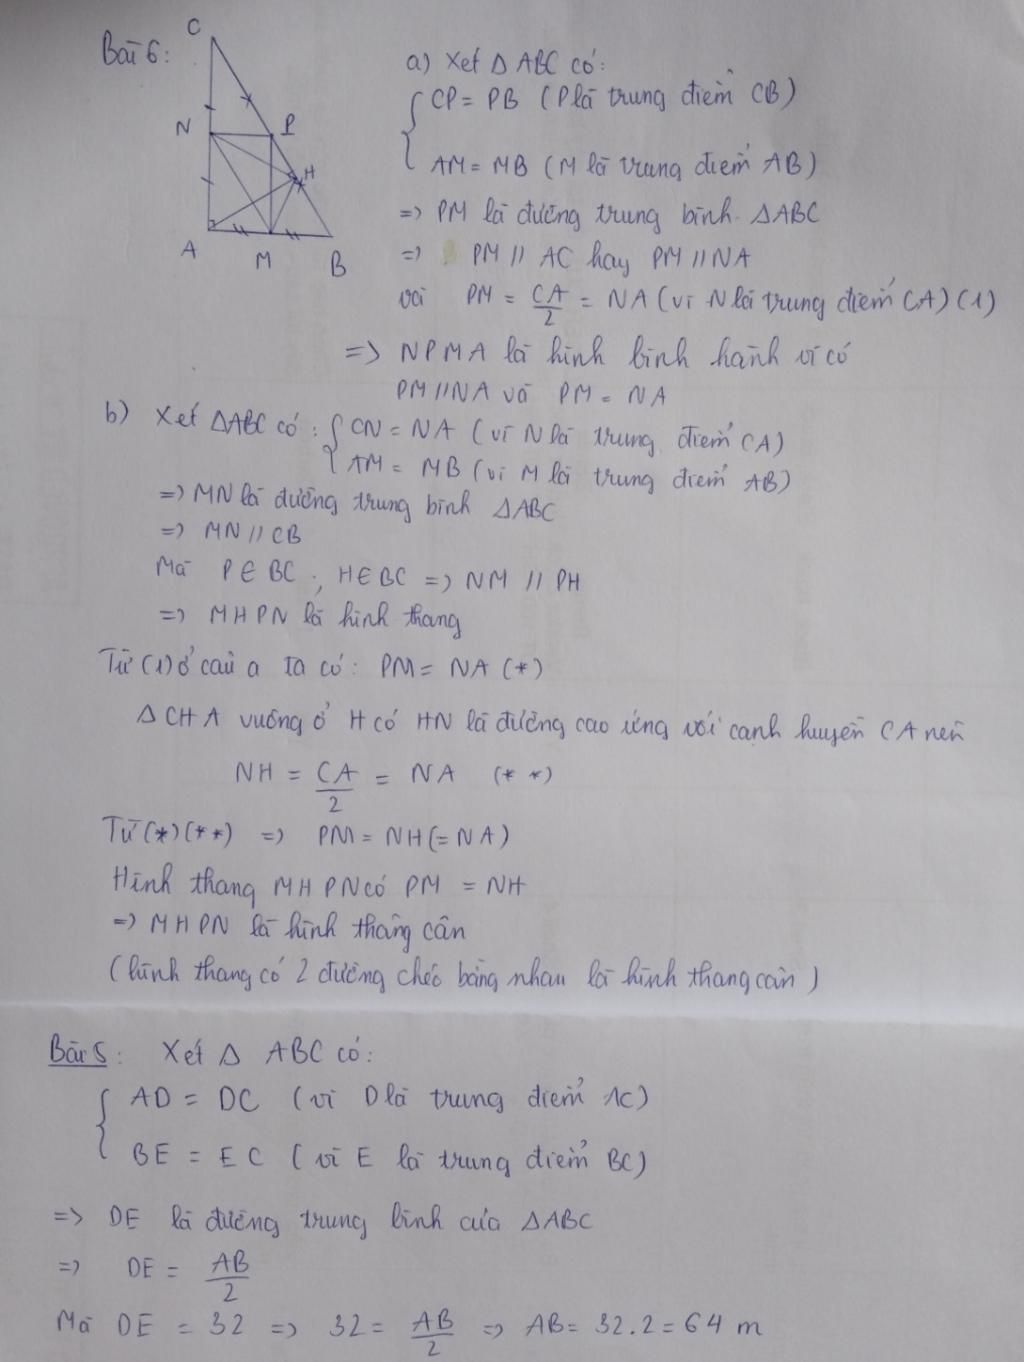 Bài 6:
C
N
P
H
A
M
B
a) Xét Δ ABC có:
{ CP = PB (P là trung điểm CB)
AM = MB (M là trung điểm AB)
=> PM là đường trung bình ΔABC
=> PM // AC hay PM // NA
và PM = CA/2 = NA (vì N là trung điểm CA) (1)
=> NPMA là hình bình hành vì có
PM // NA và PM = NA
b) Xét ΔABC có: { CN = NA (vì N là trung điểm CA)
AM = MB (vì M là trung điểm AB)
=> MN là đường trung bình ΔABC
=> MN // CB
Mà P ∈ BC; H ∈ BC => NM // PH
=> MHPN là hình thang
Từ (1) ở câu a ta có: PM = NA (*)
Δ CHA vuông ở H có HN là đường cao ứng với cạnh huyền CA nên
NH = CA/2 = NA (**)
Từ (*)(**) => PM = NH (= NA)
Hình thang MHPN có PM = NH
=> MHPN là hình thang cân
(hình thang có 2 đường chéo bằng nhau là hình thang cân)
Bài 5: Xét Δ ABC có:
{ AD = DC (vì D là trung điểm AC)
BE = EC (vì E là trung điểm BC)
=> DE là đường trung bình của ΔABC
=> DE = AB/2
Mà DE = 32 => 32 = AB/2 => AB = 32.2 = 64 m